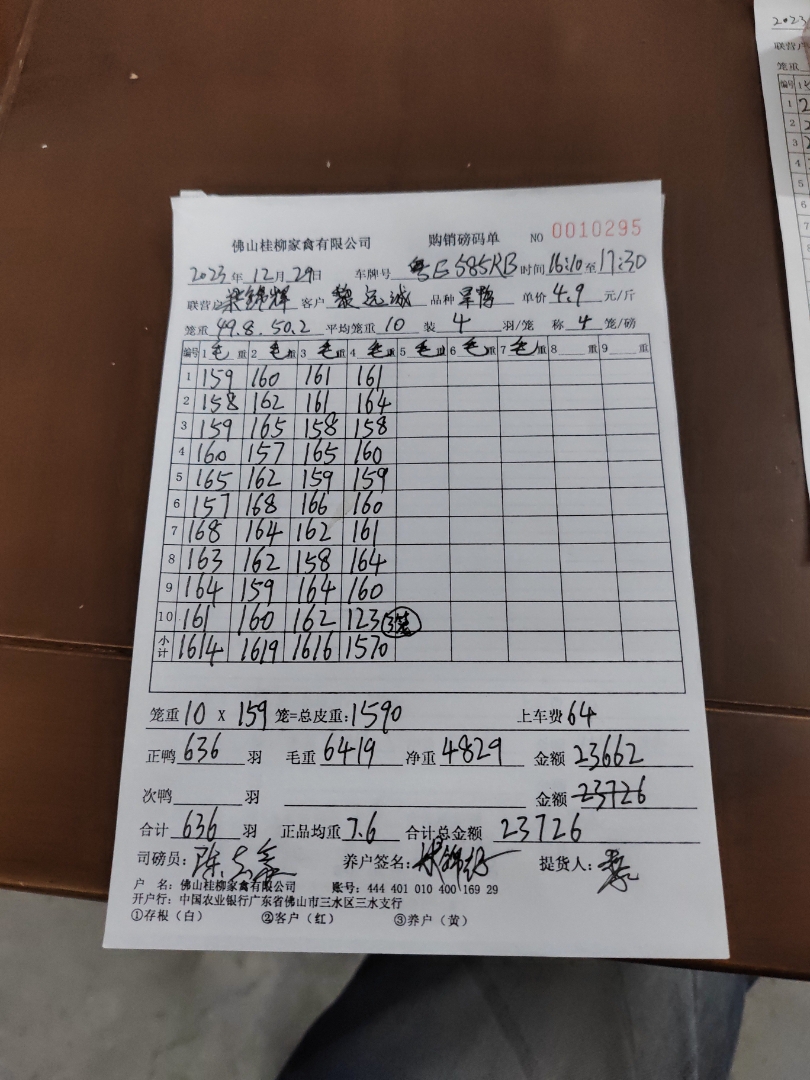 佛山桂柳家禽有限公司 购销磅码单 NO 0010295
2023年12月29日 车牌号 粤E585RB 时间16:10至17:30
联营户梁锦辉 客户 黎远诚 品种 单价4.9元/斤
笼重49.8.50.2 平均笼重10 装4羽/笼 称4笼/磅
编号 1毛重 2毛重 3毛重 4毛重 5毛重 6毛重 7毛重 8 重 9 重
1 159 160 161 161
2 158 162 161 164
3 159 165 158 158
4 160 157 165 160
5 165 162 159 159
6 157 168 166 160
7 168 164 162 161
8 163 162 158 164
9 164 159 164 160
10 161 160 162 123 3装
小计 1614 1619 1616 1570
笼重10 X 159笼=总皮重:1590 上车费64
正鸭636羽 毛重6419 净重4829 金额23662
次鸭 羽 金额23726
合计636羽 正品均重7.6 合计总金额23726
司磅员: 养户签名: 提货人:
户 名: 佛山桂柳家禽有限公司 账号: 444 401 010 400 169 29
开户行: 中国农业银行广东省佛山市三水区三水支行
①存根(白) ②客户(红) ③养户(黄)
2023
联营户
笼重
编号
1
2
3
4
5
6
7
8
9